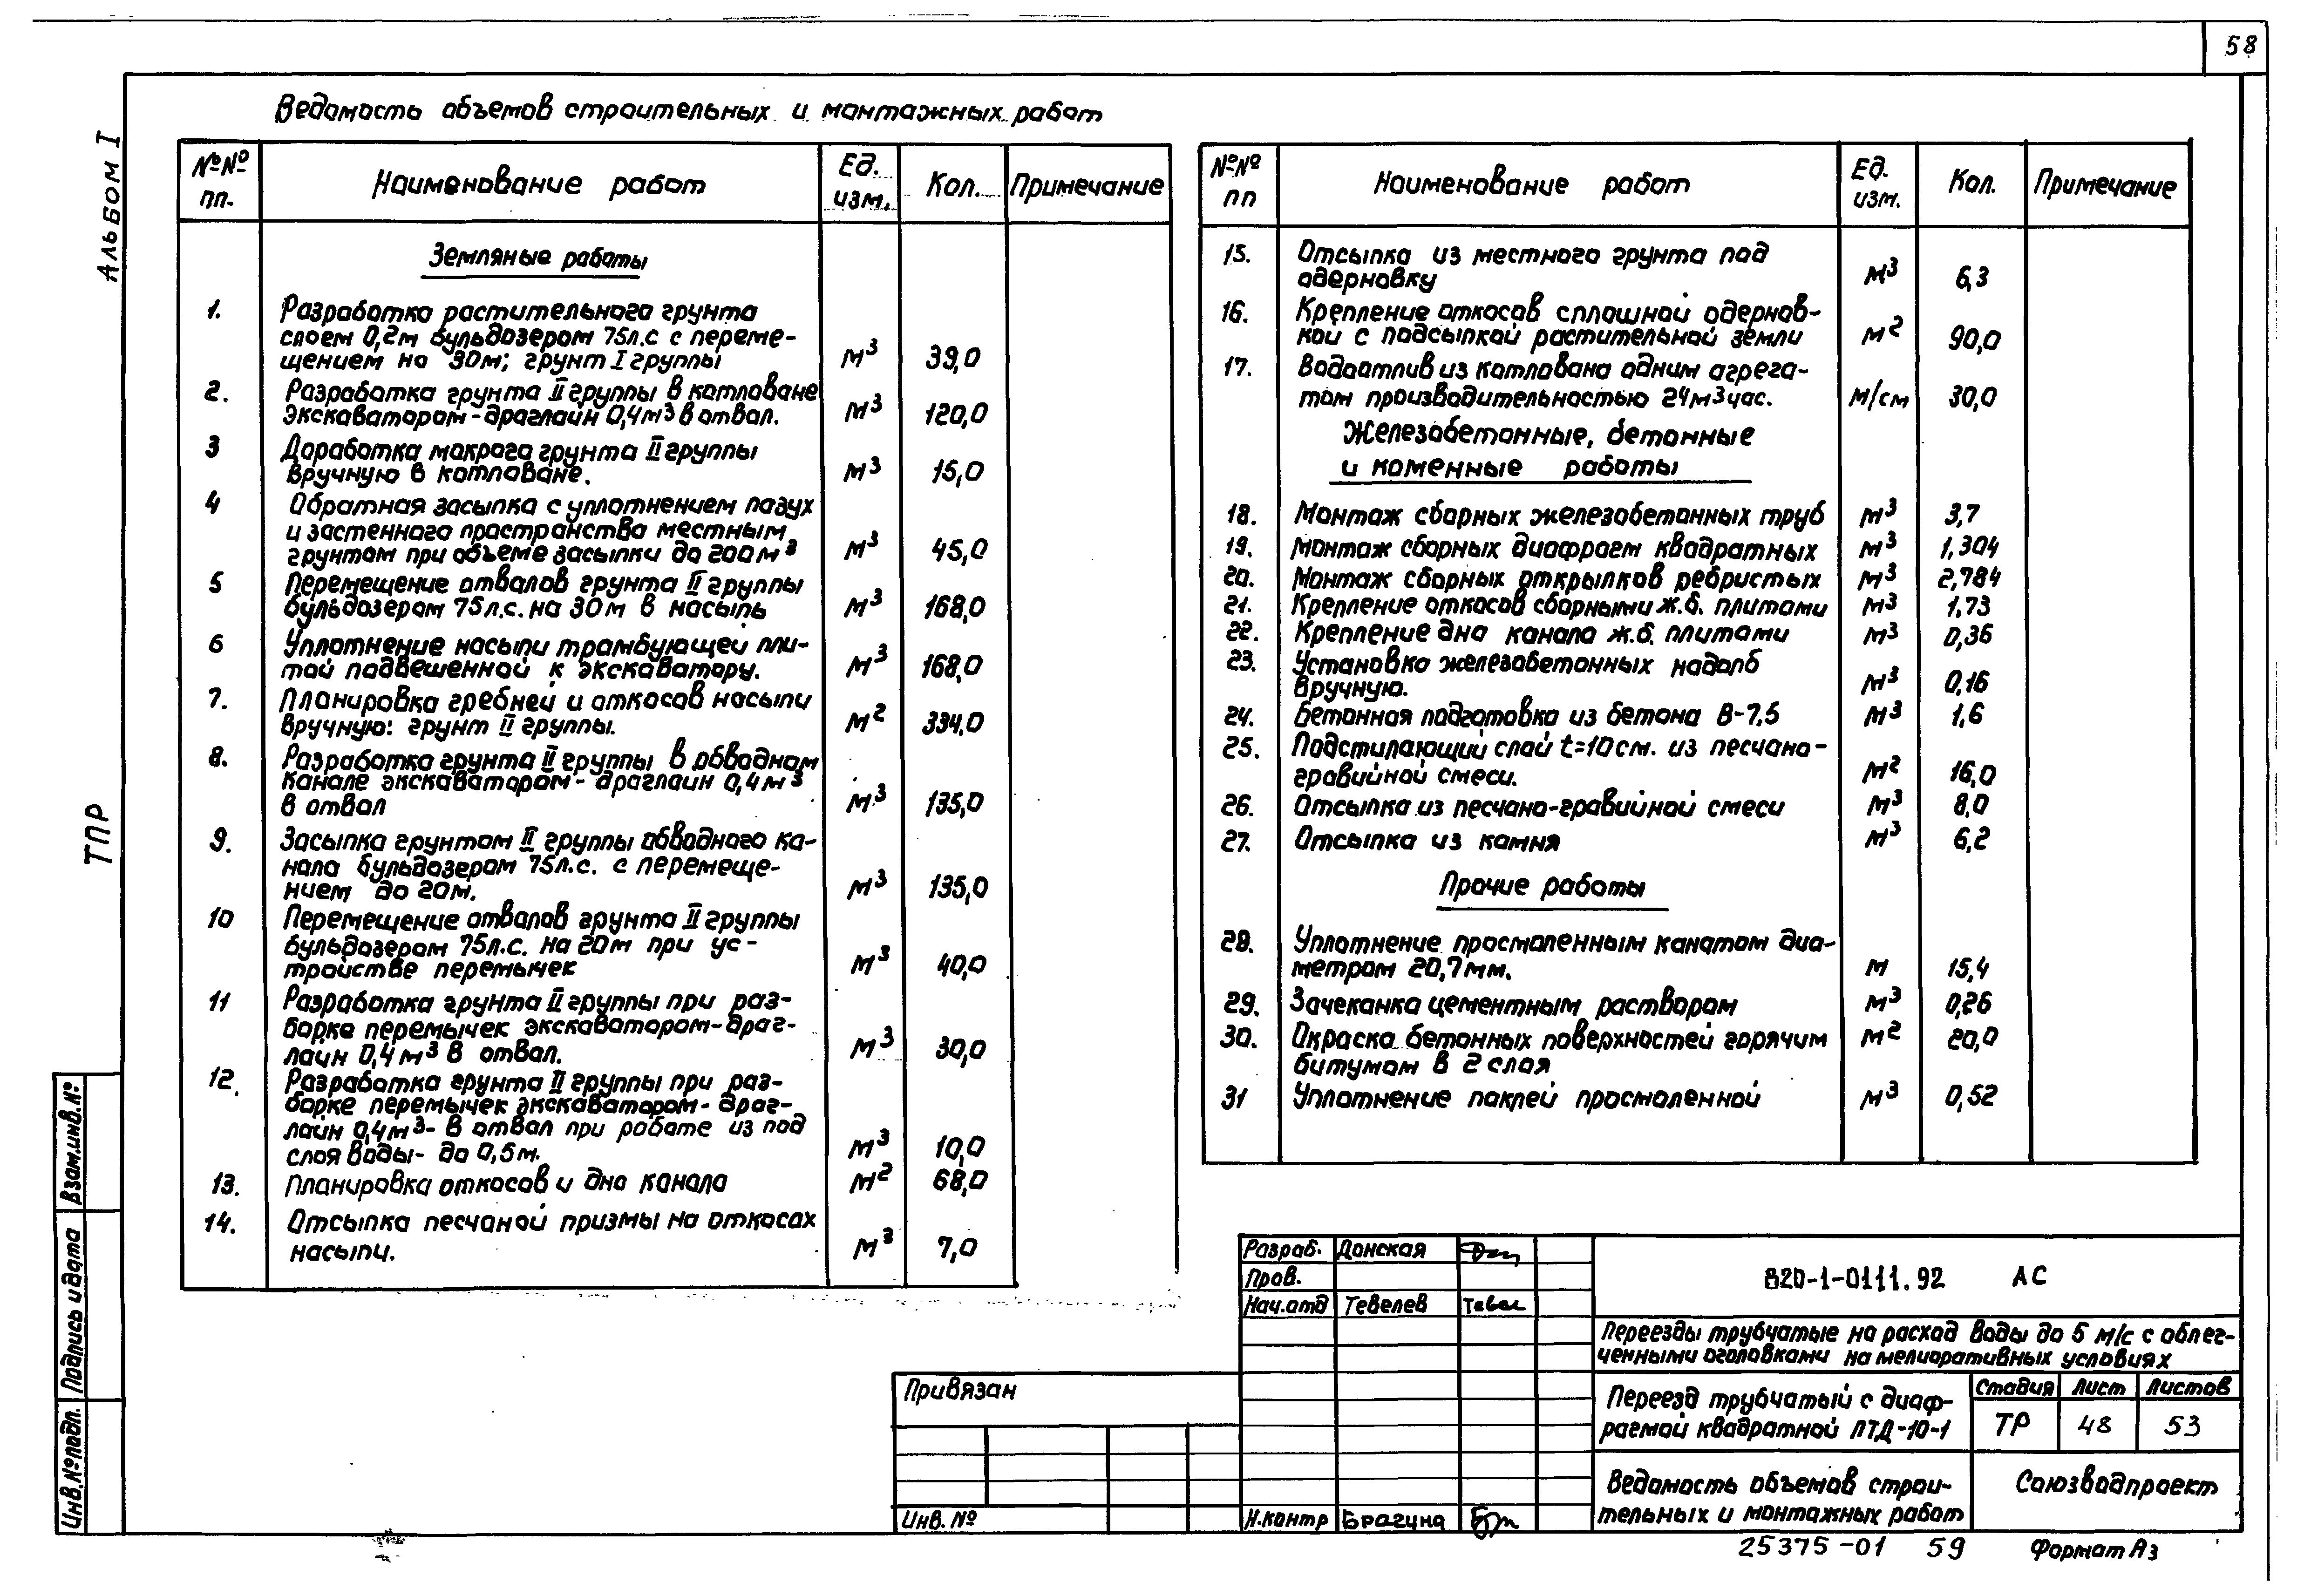 58
Ведомость объемов строительных и монтажных работ
Альбом I
ТПР
№№ пп. Наименование работ Ед. изм. Кол. Примечание
Земляные работы
1. Разработка растительного грунта
слоем 0,2м бульдозером 75л.с с переме-
щением на 30м; грунт I группы м³ 39,0
2. Разработка грунта II группы в котловане
экскаватором-драглайн 0,4м³ в отвал. м³ 120,0
3 Доработка мокрого грунта II группы
вручную в котловане. м³ 15,0
4 Обратная засыпка с уплотнением пазух
и застенного пространства местным
грунтом при объеме засыпки до 200м³ м³ 45,0
5 Перемещение отвалов грунта II группы
бульдозером 75л.с. на 30м в насыпь м³ 168,0
6 Уплотнение насыпи трамбующей пли-
той подвешенной к экскаватору. м³ 168,0
7. Планировка гребней и откосов насыпи
вручную: грунт II группы. м² 334,0
8. Разработка грунта II группы в обводном
канале экскаватором-драглайн 0,4м³
в отвал м³ 135,0
9. Засыпка грунтом II группы обводного ка-
нала бульдозером 75л.с. с перемеще-
нием до 20м. м³ 135,0
10 Перемещение отвалов грунта II группы
бульдозером 75л.с. на 20м при ус-
тройстве перемычек м³ 40,0
11 Разработка грунта II группы при раз-
борке перемычек экскаватором-драг-
лайн 0,4м³ в отвал. м³ 30,0
12. Разработка грунта II группы при раз-
борке перемычек экскаватором-драг-
лайн 0,4м³- в отвал при работе из под
слоя воды- до 0,5м. м³ 10,0
13. Планировка откосов и дна канала м² 68,0
14. Отсыпка песчаной призмы на откосах
насыпи. м³ 7,0
№№ пп Наименование работ Ед. изм. Кол. Примечание
15. Отсыпка из местного грунта под
одерновку м³ 6,3
16. Крепление откосов сплошной одернов-
кой с подсыпкой растительной земли м² 90,0
17. Водоотлив из котлована одним агрега-
том производительностью 24м³час. м/см 30,0
Железобетонные, бетонные
и каменные работы
18. Монтаж сборных железобетонных труб м³ 3,7
19. Монтаж сборных диафрагм квадратных м³ 1,304
20. Монтаж сборных открылков ребристых м³ 2,784
21. Крепление откосов сборными ж.б. плитами м³ 1,73
22. Крепление дна канала ж.б. плитами м³ 0,36
23. Установка железобетонных надолб
вручную. м³ 0,16
24. Бетонная подготовка из бетона В-7,5 м³ 1,6
25. Подстилающий слой t=10см. из песчано-
гравийной смеси. м² 16,0
26. Отсыпка из песчано-гравийной смеси м³ 8,0
27. Отсыпка из камня м³ 6,2
Прочие работы
28. Уплотнение просмоленным канатом диа-
метром 20,7мм. м 15,4
29. Зачеканка цементным раствором м³ 0,26
30. Окраска бетонных поверхностей горячим м² 20,0
битумом в 2 слоя
31 Уплотнение паклей просмоленной м³ 0,52
Разраб. Донская
Пров.
Нач.отд Тевелев
Н.контр Брагина
820-1-0111.92 АС
Переезды трубчатые на расход воды до 5 м/с с облег-
ченными оголовками на мелиоративных условиях
Переезд трубчатый с диаф-
рагмой квадратной ПТД-10-1
Стадия Лист Листов
ТР 48 53
Ведомость объемов строи-
тельных и монтажных работ
Союзводпроект
Привязан
Инв. №
Взам.инв.№
Подпись и дата
Инв.№подл.
25375-01 59 Формат А3